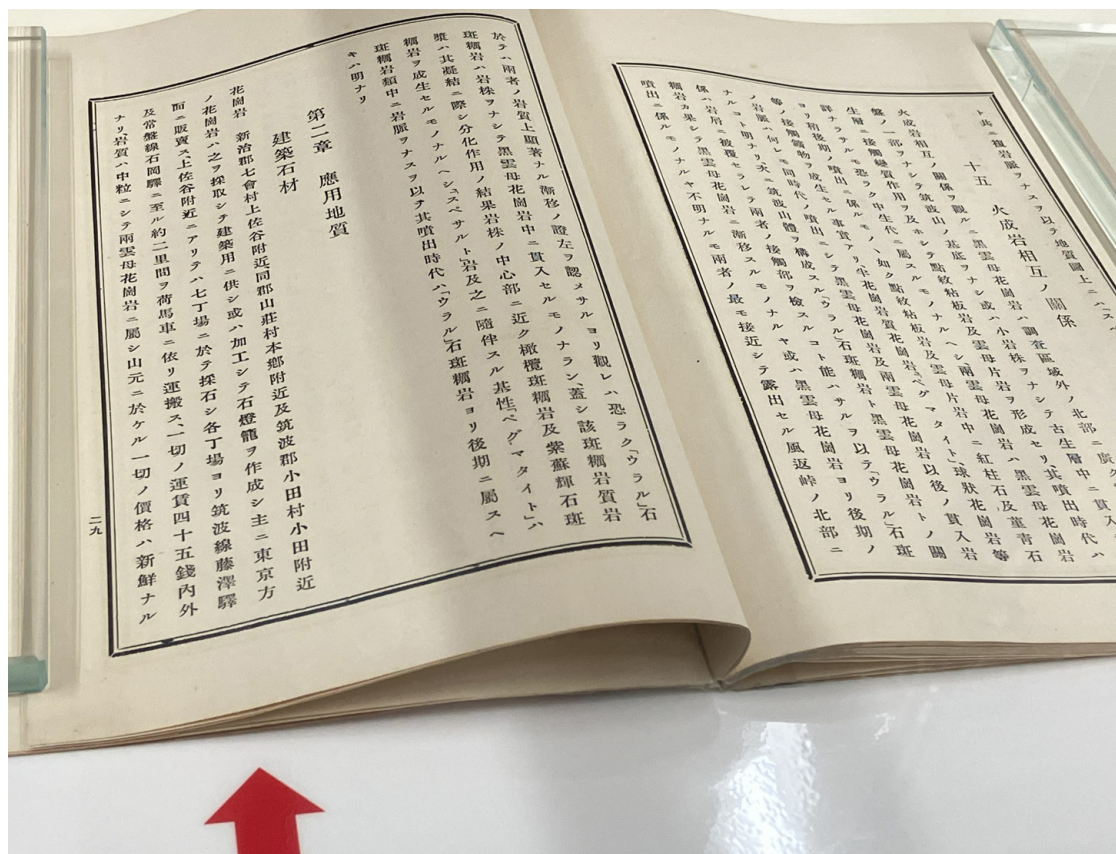 ト共ニ複岩脈ヲナスヲ以テ地質圖上ニハ
十五 火成岩相互ノ關係
火成岩相互ノ關係ヲ觀ルニ黑雲母花崗岩ハ調査區域外ノ北部ニ廣
盤ノ一部ヲナシテ筑波山ノ基底ヲナシ或ハ小岩株ヲナシテ古生層中ニ貫入
生層ニ接觸變質作用ヲ及ホシテ點紋粘板岩及雲母片岩ヲ形成セリ、其噴出時代ハ
詳ナラサルモ恐ラク中生代ニ屬スルモノナルヘシ兩雲母花崗岩ハ黑雲母花崗岩
ヨリ稍後期ノ噴出ニ係ルモノヽ如ク點紋粘板岩及雲母片岩中ニ紅柱石及菫青石
等ノ接觸鑛物ヲ成生セル事實アリ半花崗岩質花崗岩、「ペグマタイト」、球狀花崗岩等
ノ岩脈ハ何レモ同時代ノ噴出ニシテ黑雲母花崗岩及兩雲母花崗岩以後ノ貫入岩
ナルコト明ナリ夫ニ筑波山體ヲ構成スル「ウラル」石斑糲岩ト黑雲母花崗岩トノ關
係ハ岩屑ニ被覆セラレテ兩者ノ接觸部ヲ檢スルコト能ハサルヲ以テ「ウラル」石斑
糲岩カ果シテ黑雲母花崗岩ニ漸移スルモノナルヤ或ハ黑雲母花崗岩ヨリ後期ノ
噴出ニ係ルモノナルヤ不明ナルモ兩者ノ最モ接近シテ露出セル風返峠ノ北部ニ
於テハ兩者ノ岩質上顯著ナル漸移ノ證左ヲ認メサルヨリ觀レハ恐ラク「ウラル」石
斑糲岩ハ岩株ヲナシテ黑雲母花崗岩中ニ貫入セルモノナラン、蓋シ該斑糲岩質岩
漿ハ其凝結ニ際シ分化作用ノ結果岩株ノ中心部ニ近ク橄欖斑糲岩及紫蘇輝石斑
糲岩ヲ成生セルモノナルヘシ、「スペサルト」岩及之ニ隨伴スル基性「ペグマタイト」ハ
斑糲岩類中ニ岩脈ヲナスヲ以テ其噴出時代ハ「ウラル」石斑糲岩ヨリ後期ニ屬スヘ
キハ明ナリ
第二章 應用地質
建築石材
花崗岩 新治郡七會村上佐谷附近同郡山莊村本鄕附近及筑波郡小田村小田附近
ノ花崗岩ハ之ヲ採取シテ建築用ニ供シ或ハ加工シテ石燈籠ヲ作成シ主ニ東京方
面ニ販賣ス、上佐谷附近ニアリテハ七丁場ニ於テ採石シ各丁場ヨリ筑波線藤澤驛
及常盤線石岡驛ニ至ル約二里間ヲ荷馬車ニ依リ運搬ス、一切ノ運賃四十五錢內外
ナリ、岩質ハ中粒ニシテ兩雲母花崗岩ニ屬シ山元ニ於ケル一切ノ價格ハ新鮮ナル
二九